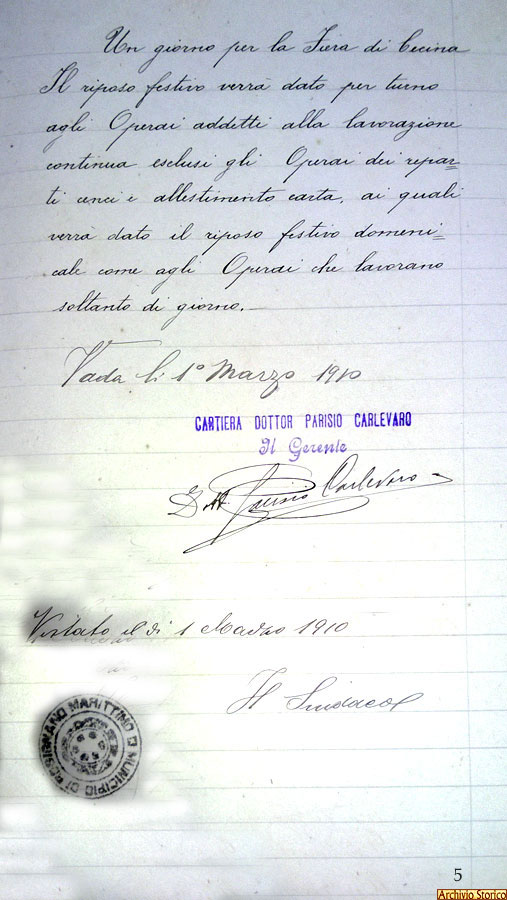 Un giorno per la Fiera di Cecina
Il riposo festivo verrà dato per turno
agli Operai addetti alla lavorazione
continua esclusi gli Operai dei repar=
ti cenci e allestimento carta, ai quali
verrà dato il riposo festivo domeni=
cale come agli Operai che lavorano
soltanto di giorno.
Vada li 1º Marzo 1910
CARTIERA DOTTOR PARISIO CARLEVARO
Il Gerente
Dott. Parisio Carlevaro
Vistato il di 1 Marzo 1910
Il Sindaco
MUNICIPIO DI ROSIGNANO MARITTIMO
5
Archivio Storico